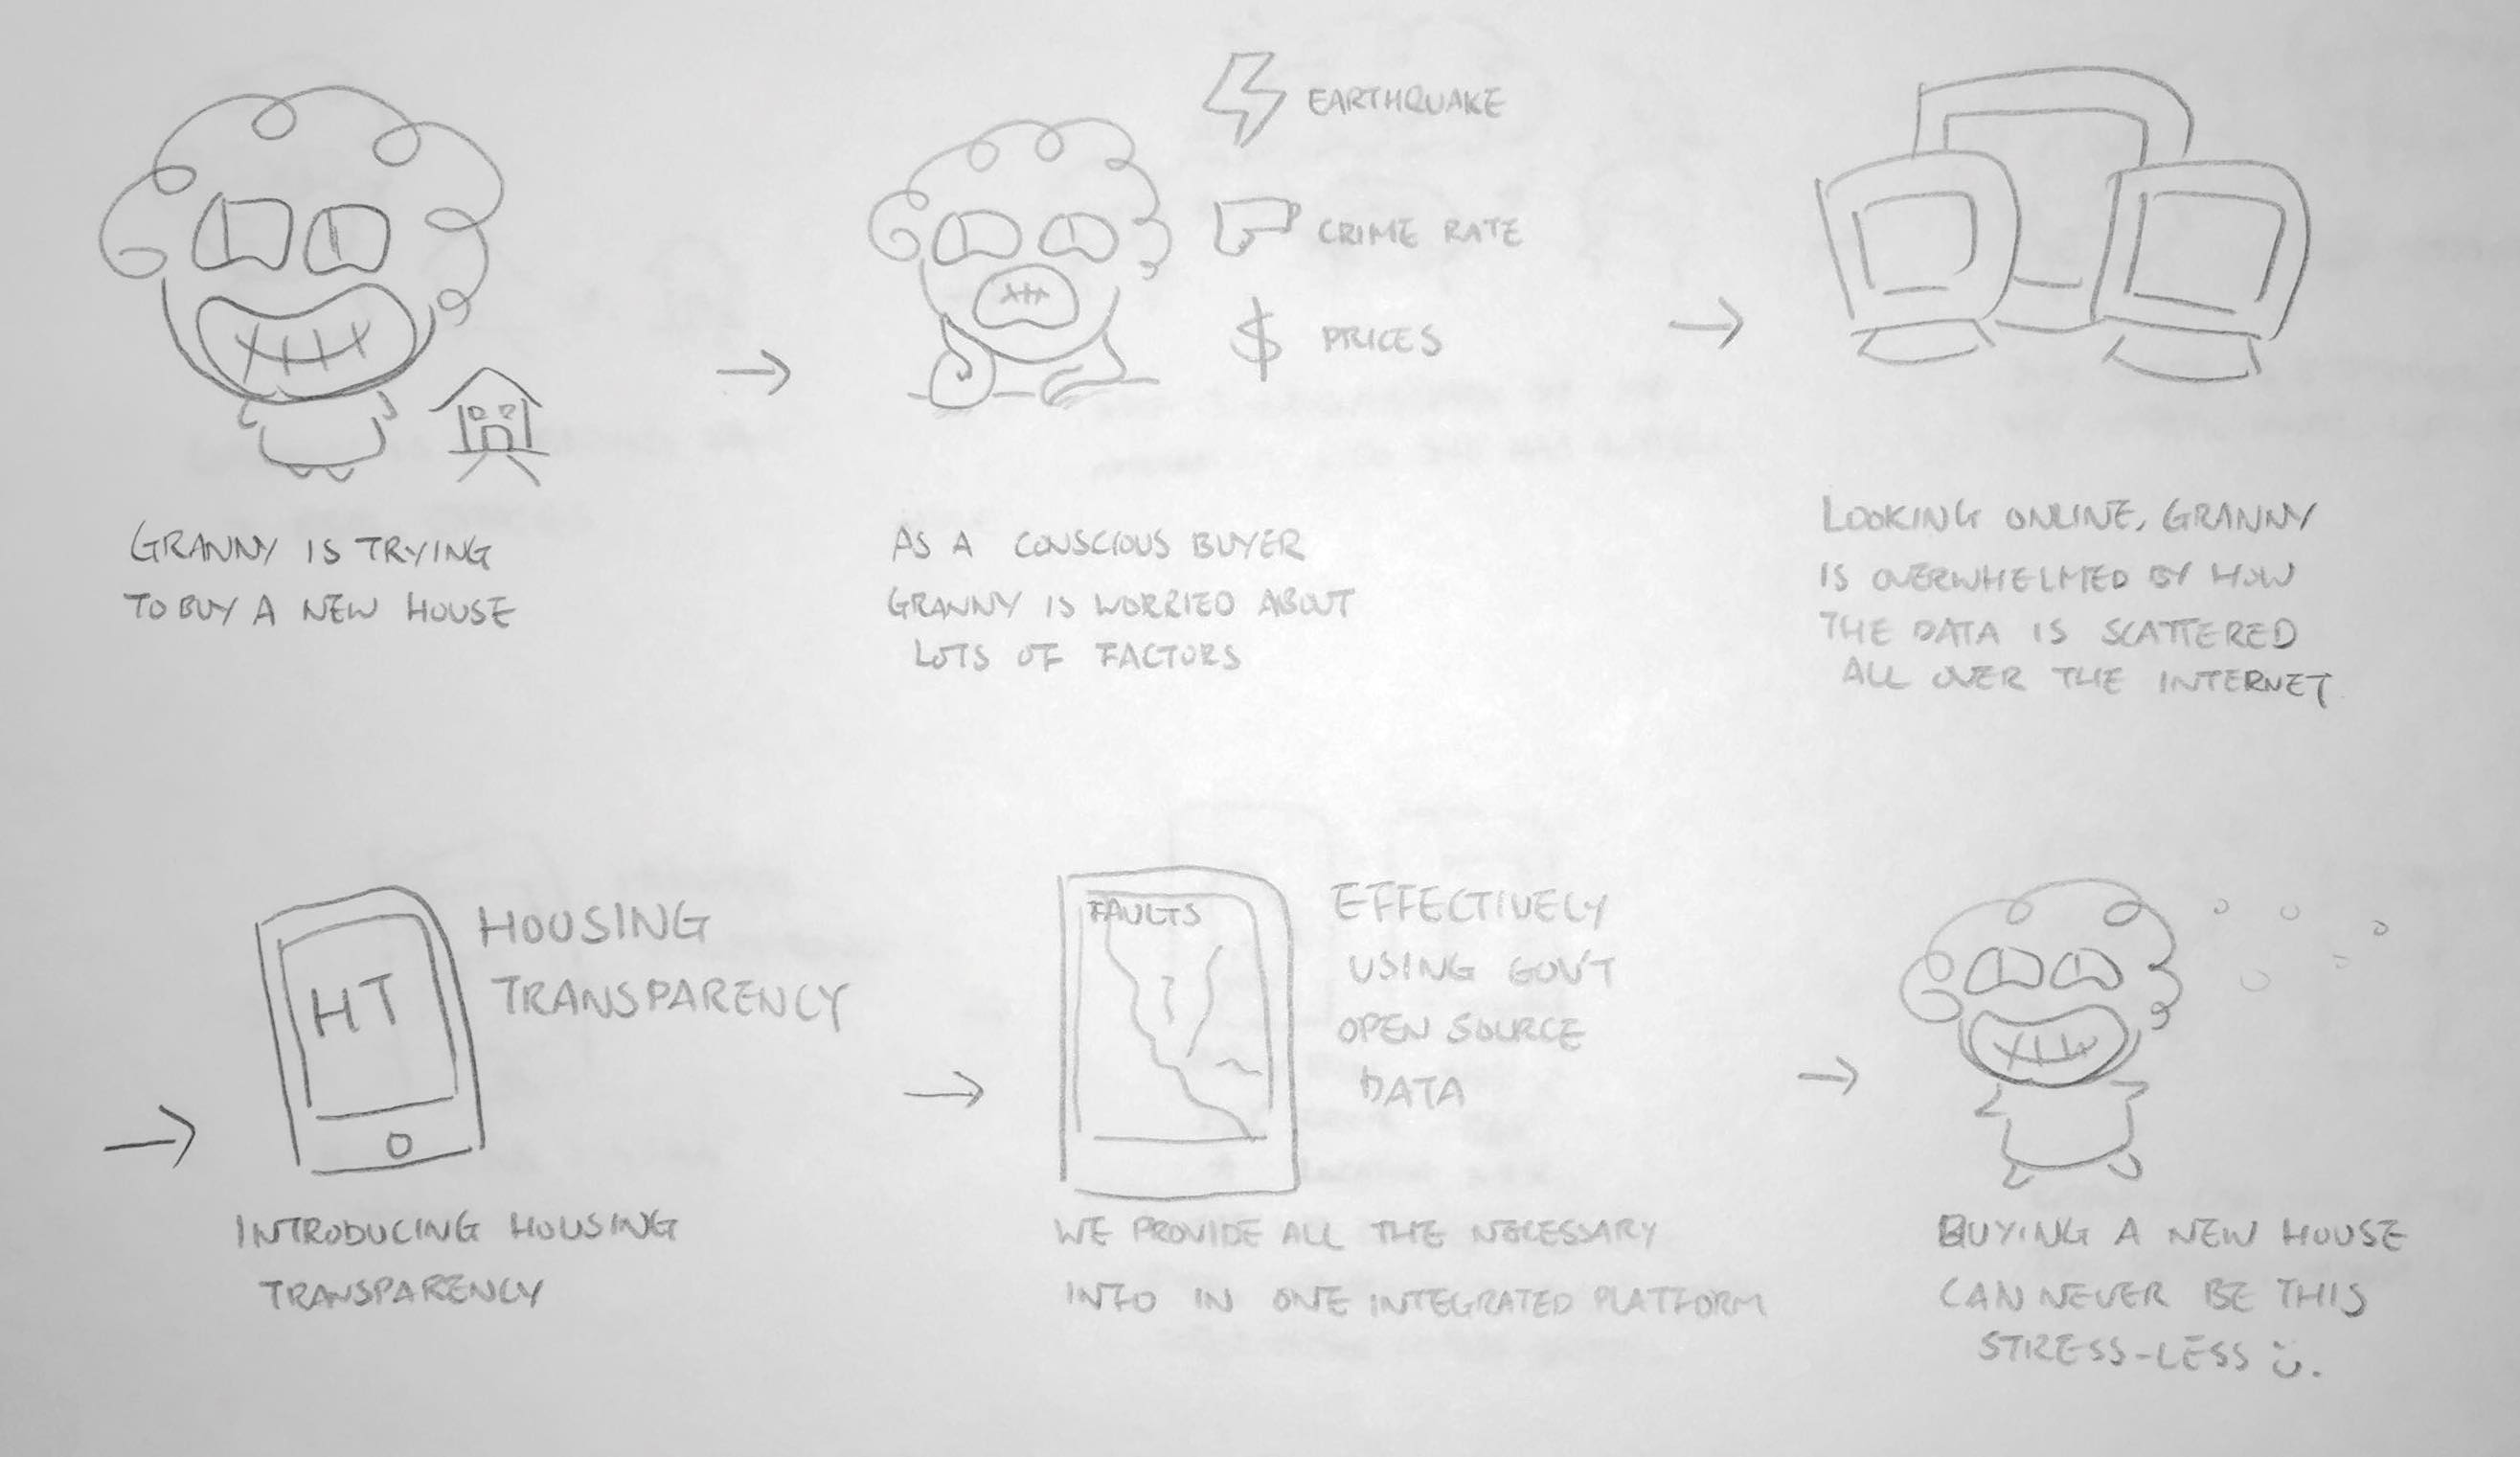 EARTHQUAKE
CRIME RATE
$ PRICES
GRANNY IS TRYING
TO BUY A NEW HOUSE
AS A CONSCIOUS BUYER
GRANNY IS WORRIED ABOUT
LOTS OF FACTORS
LOOKING ONLINE, GRANNY
IS OVERWHELMED BY HOW
THE DATA IS SCATTERED
ALL OVER THE INTERNET
HT
HOUSING
TRANSPARENCY
INTRODUCING HOUSING
TRANSPARENCY
FAULTS
EFFECTIVELY
USING GOV'T
OPEN SOURCE
DATA
WE PROVIDE ALL THE NECESSARY
INFO IN ONE INTEGRATED PLATFORM
BUYING A NEW HOUSE
CAN NEVER BE THIS
STRESS-LESS :).